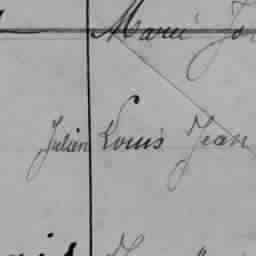 Marie
Julien Louis Jean